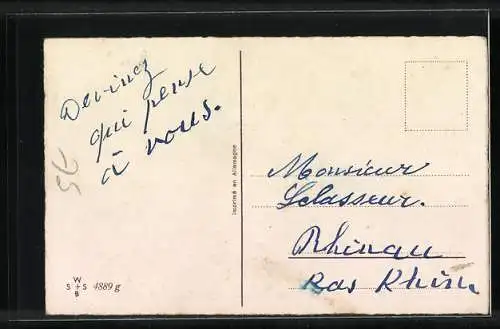 Devinez
qui pense
à vous.
75
Imprimé en Allemagne
W
S + S
B
4889 g
Monsieur
Selasseur.
Rhinau
Bas Rhin